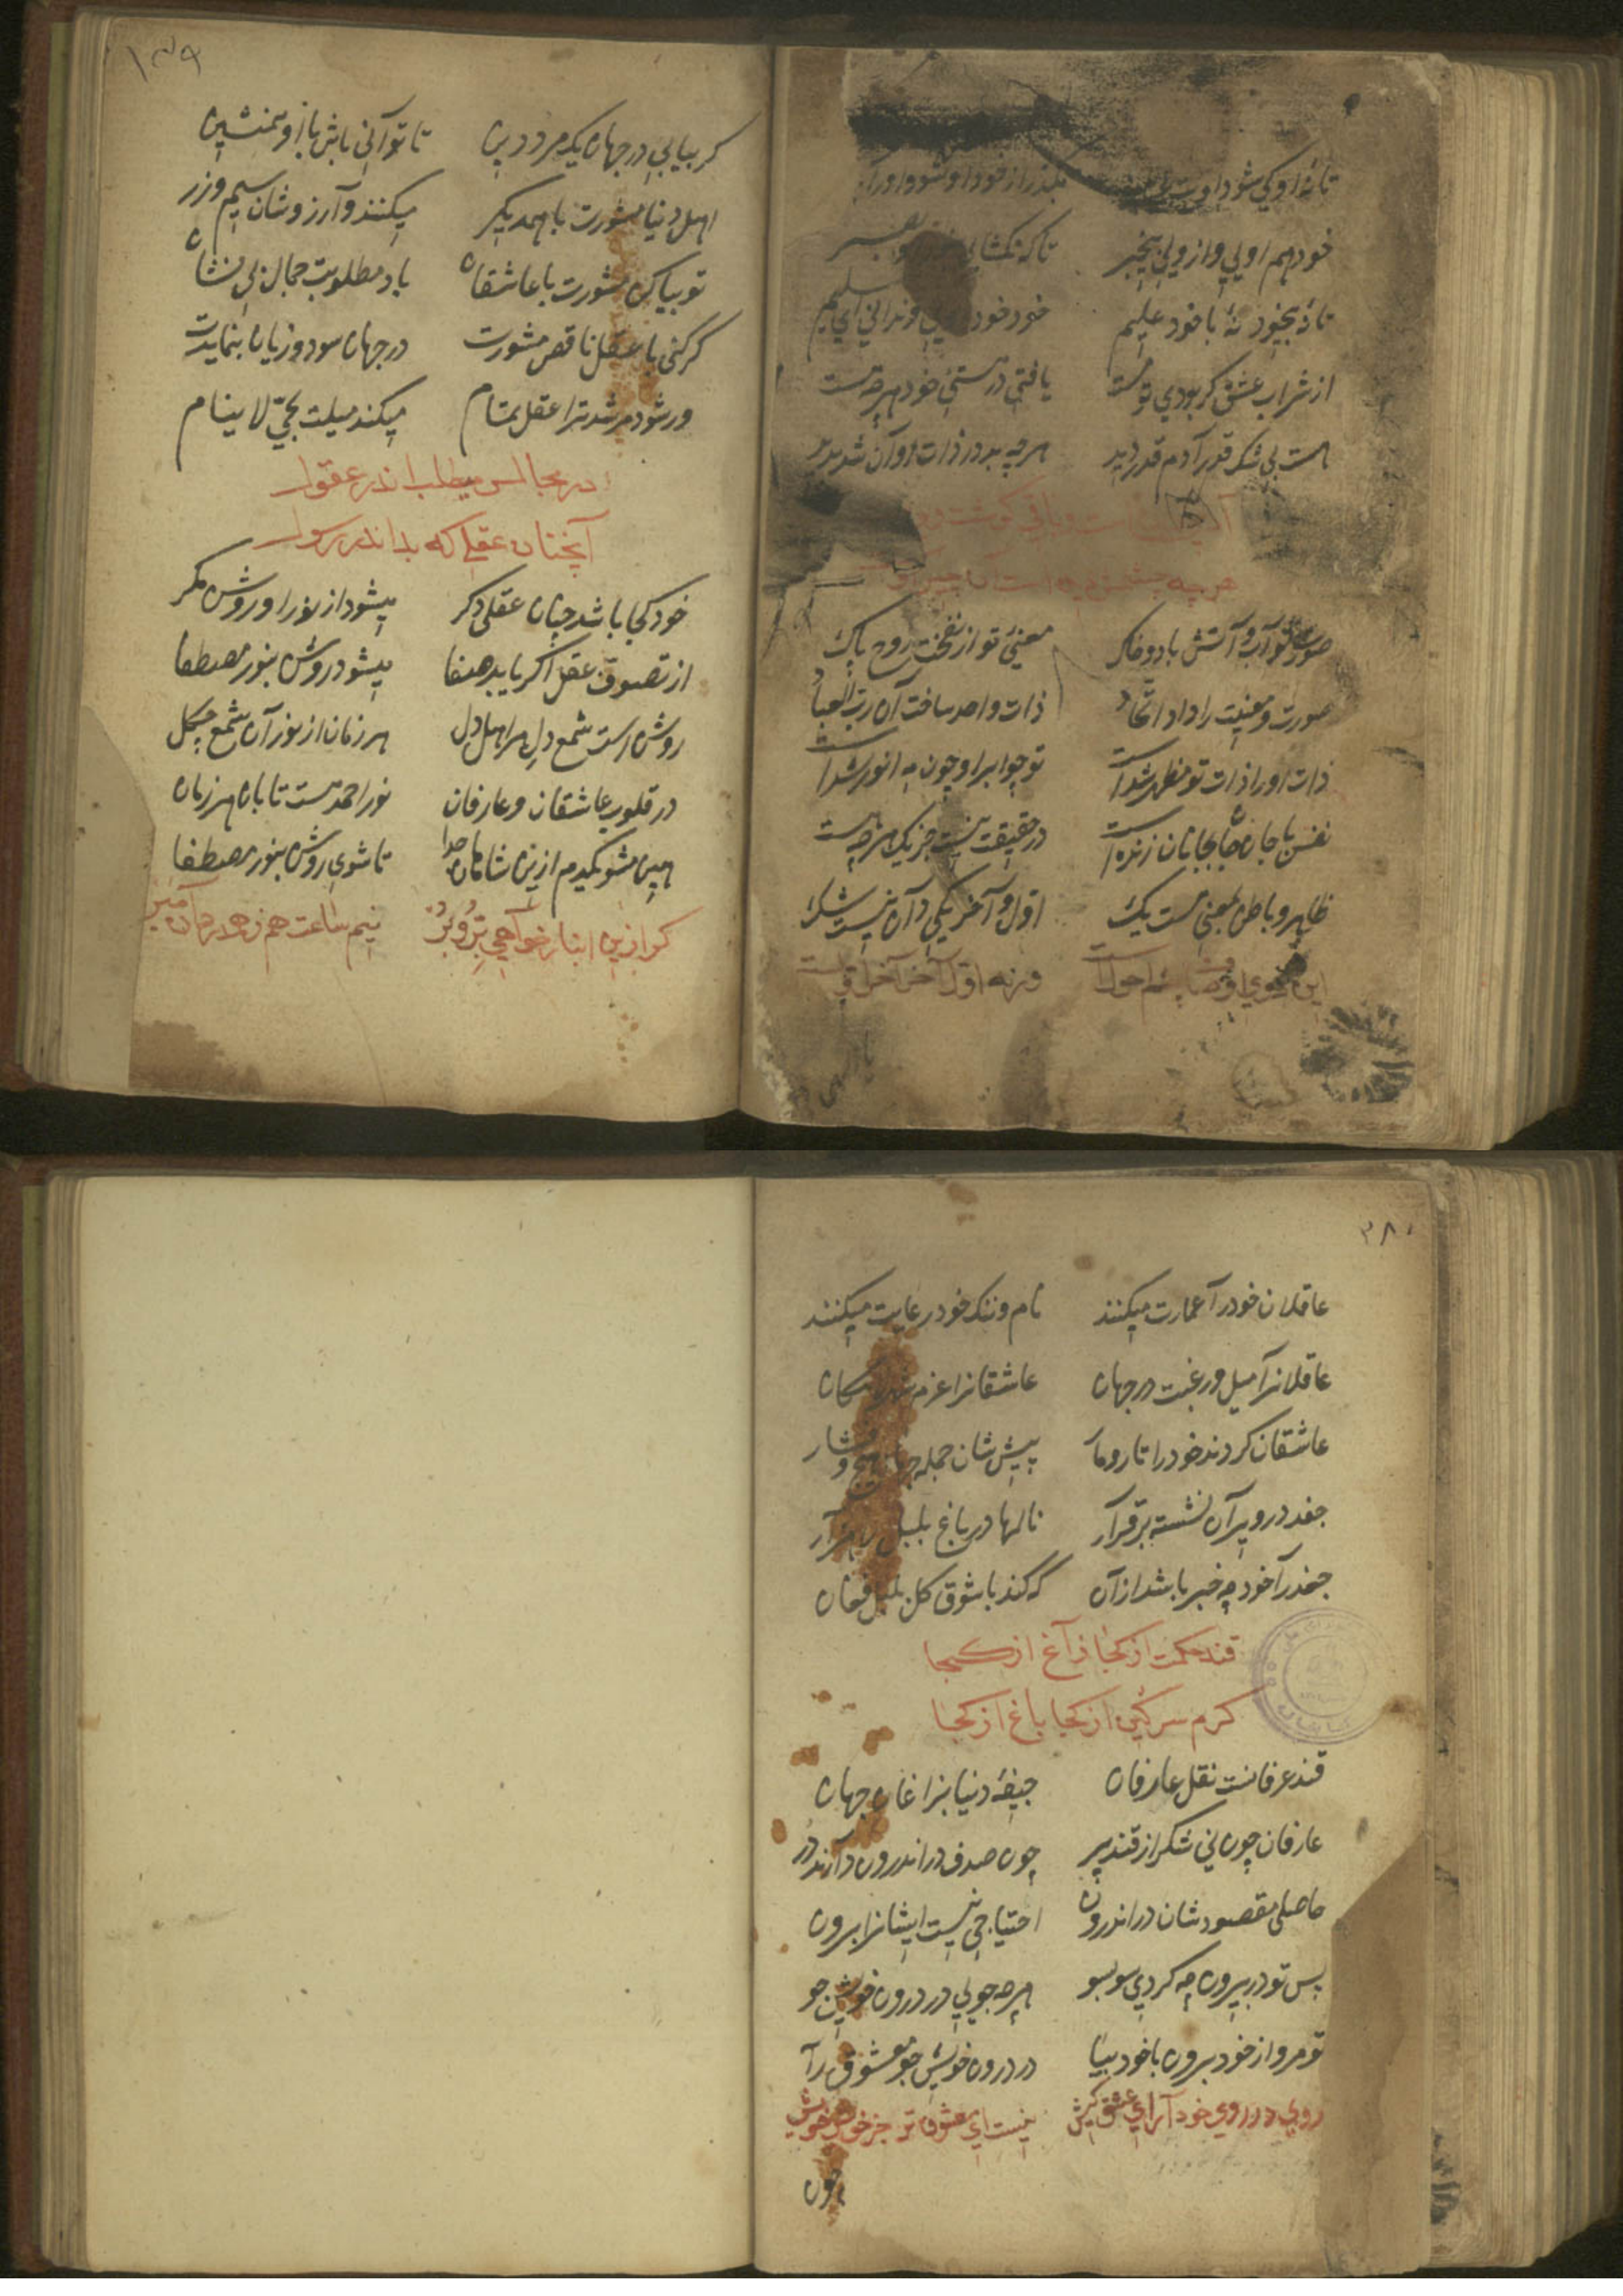 تا نهٔ او کی شود اوست
بگذر از خود او شود او را
خود هم اویی و از ویی بیخبر
تا که نگشایی
تا نهٔ بیخود نهٔ با خود علیم
خود خود ندانی ای سلیم
از شراب عشق کر بودی تو مست
یافتی در هستی خود هرچه هست
هست بی شک قدر آدم قدر دید
هرچه بد در ذات او آن شد پدید
آدمی دید است و باقی کوشت و پوست
هر چه چشمش دیده است آن چیز اوست
صورت تو آب و آتش باد و خاک
معنیٔ تو از نفخت روح پاک
صورت و معنیت را داد اتحاد
ذات واحد ساخت آن رب العباد
ذات او را ذات تو مظهر شداست
تو چو ابر او چون مه انور شداست
نفس با جان جان بجانان زنده است
در حقیقت نیست جز یک هرچه هست
ظاهر و باطن بمعنی هست یک
اول و آخر یکی دان نیست شک
این دوی اوصاف احولست
ورنه اول آخر آخر اولست
۱۷۹
کر بیابی در جهان یک مرد دین
تا توانی باش با او همنشین
اهل دنیا مشورت با همدیکر
میکنند و آرزوشان سیم و زر
تو بیا کن مشورت با عاشقان
باد مطلوبت جمال بی نشان
کر کنی با عقل ناقص مشورت
در جهان سود و زیان بنمایدت
ور شود مرشد ترا عقل تمام
میکند میلت بحیّ لا ینام
در مجالس میطلب اندر عقول
آنچنان عقلی که بد اندر رسول
خود کجا باشد چنان عقلی دکر
میشود از نور او روشن مکر
از تصوف عقل اکر یابد صفا
میشود روشن بنور مصطفا
روشن است شمع دل مر اهل دل
هر زمان از نور آن شمع چکل
در قلوب عاشقان و عارفان
نور احمد هست تابان هر زمان
هین مشو یکدم ازین شاهان جدا
تا شوی روشن بنور مصطفا
کر ازین انبار خواهی بِرّ و بُر
نیم ساعت هم ز همدردان مبر
۳۸۰
عاقلان خود را عمارت میکنند
نام و ننک خود رعایت میکنند
عاقلانرا میل و رغبت در جهان
عاشقانرا عزم
عاشقان کردند خود را تار و مار
پیش شان جمله جهان هیچ و
جغد در ویران نشسته برقرار
نالها در باغ بلبل
جغد را خود چه خبر باشد از آن
که کند با شوق کل بلبل فغان
قند حکمت از کجا زاغ از کجا
کرم سرکین از کجا باغ از کجا
قند عرفانست نقل عارفان
جیفهٔ دنیا بزاغان جهان
عارفان چون نی شکر از قند پر
چون صدف در اندرون دارند در
حاصلی مقصودشان در اندرون
احتیاجی نیست ایشانرا برون
پس تو در بیرون چه کردی سو بسو
هرچه جویی در درون خویش جو
تو مرو از خود برون با خود بیا
در درون خویش جو معشوق را
روی در روی خود آر ای عشق کیش
نیست ای معشوق تر جز خویش خویش
چون